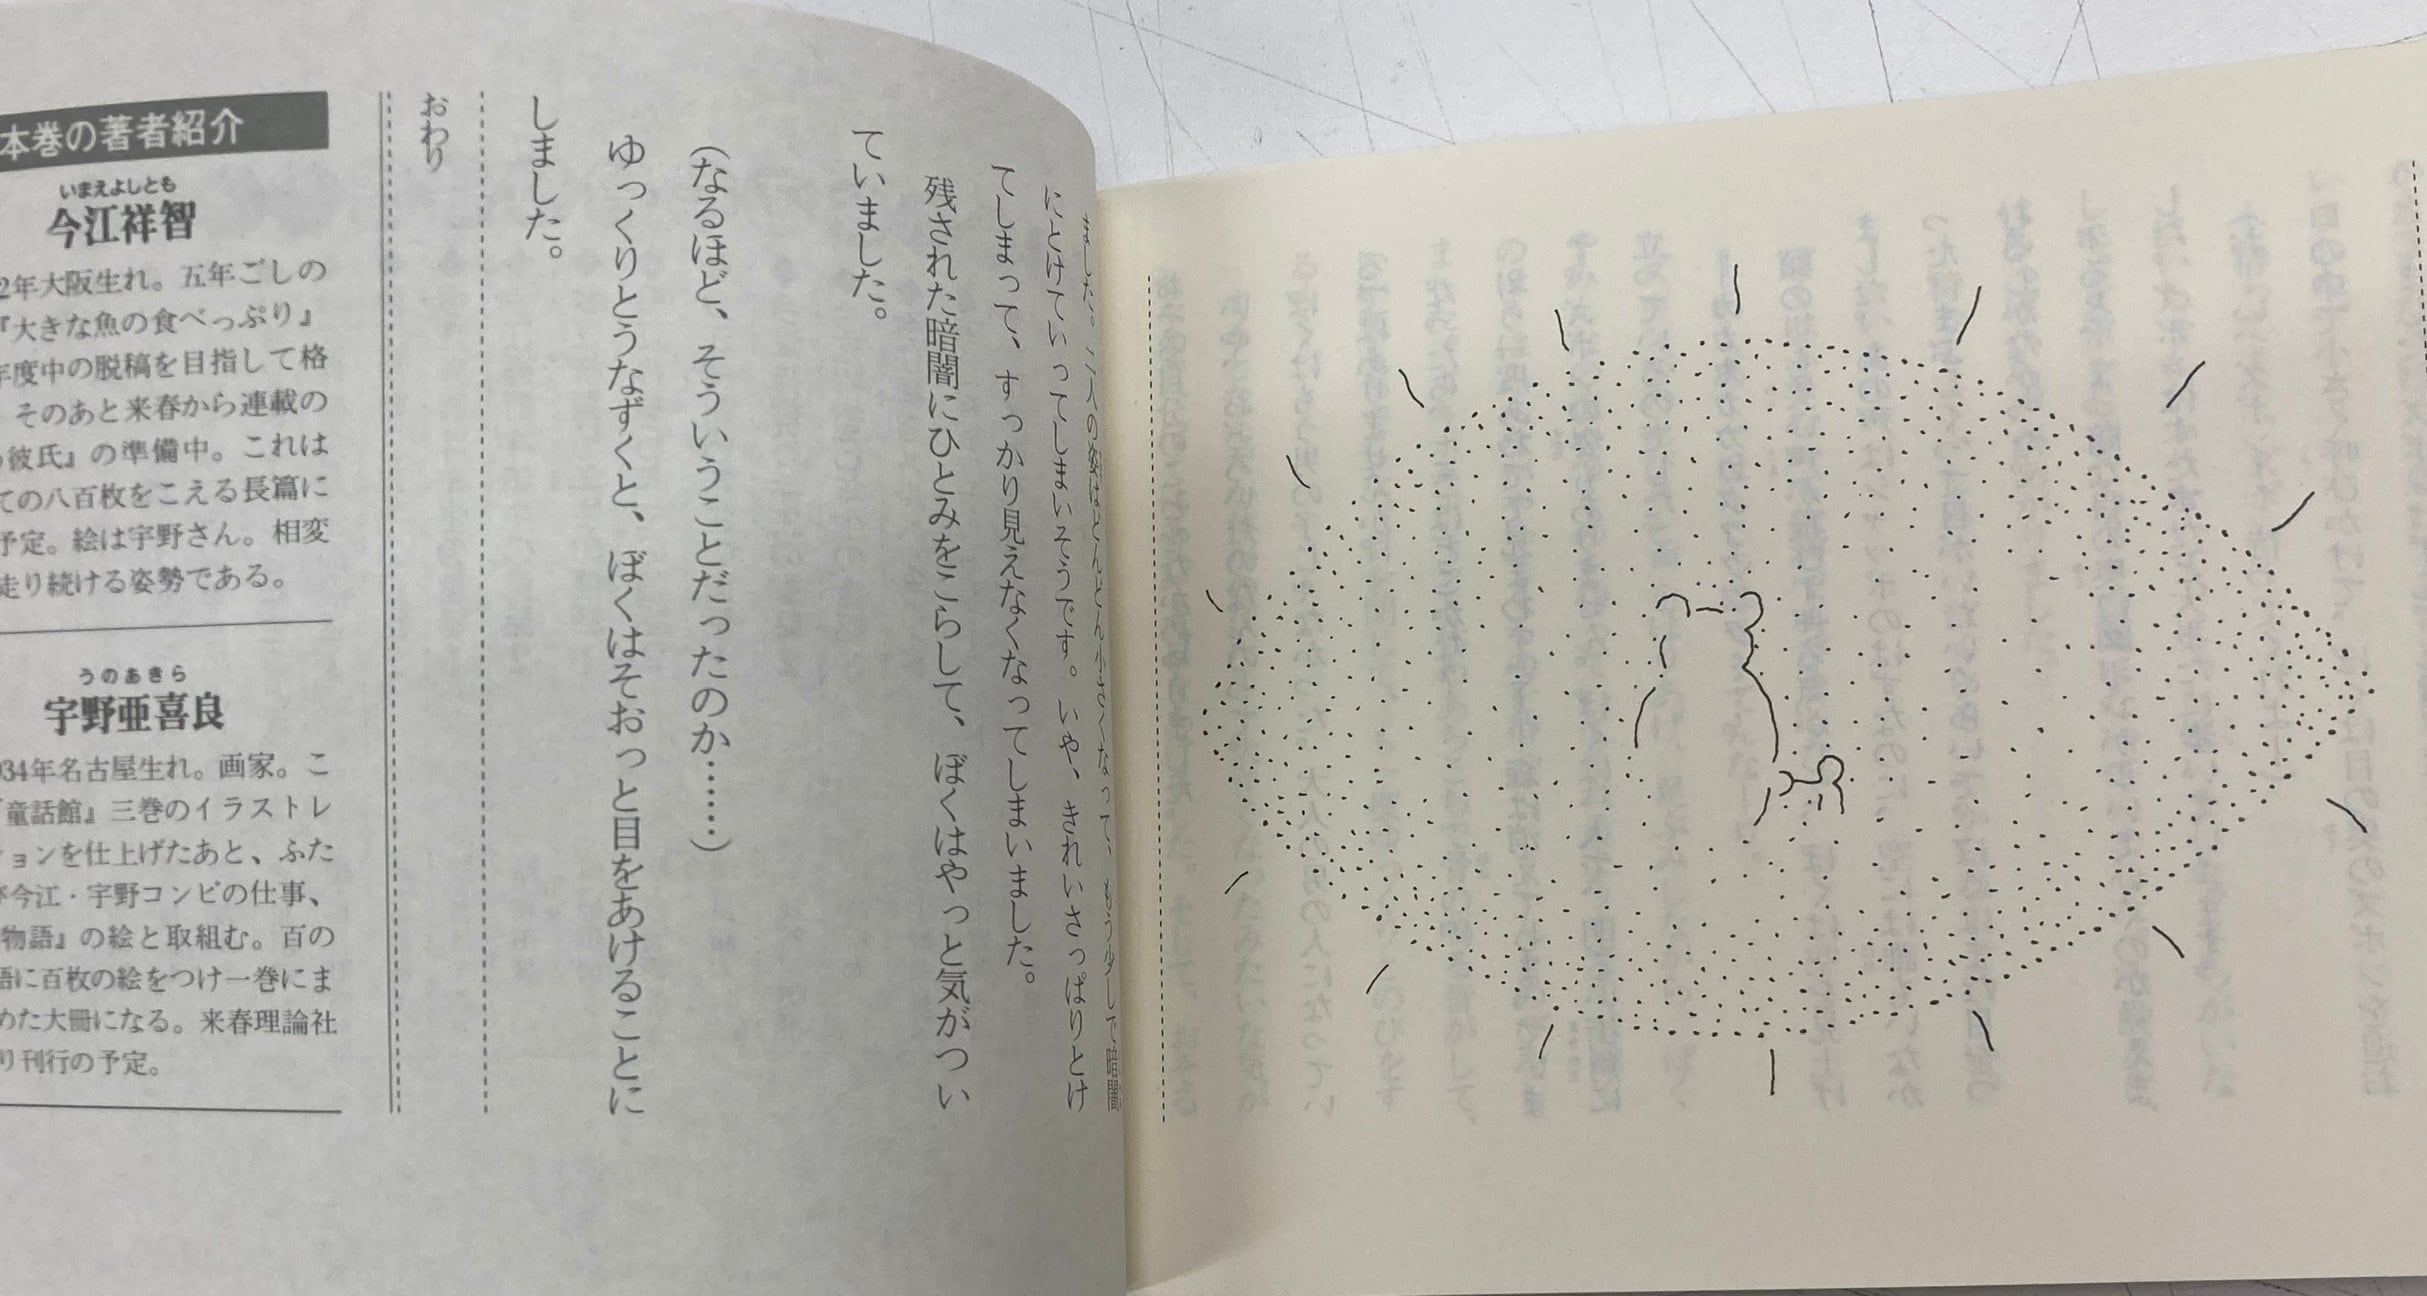 ました。二人の姿はどんどん小さくなって、もう少しで暗闇
にとけていってしまいそうです。いや、きれいさっぱりとけ
てしまって、すっかり見えなくなってしまいました。
残された暗闇にひとみをこらして、ぼくはやっと気がつい
ていました。
(なるほど、そういうことだったのか……)
ゆっくりとうなずくと、ぼくはそおっと目をあけることに
しました。
おわり
本巻の著者紹介
いまえよしとも
今江祥智
2年大阪生れ。五年ごしの
『大きな魚の食べっぷり』
年度中の脱稿を目指して格
。そのあと来春から連載の
彼氏』の準備中。これは
ての八百枚をこえる長篇に
予定。絵は宇野さん。相変
走り続ける姿勢である。
うのあきら
宇野亜喜良
934年名古屋生れ。画家。こ
『童話館』三巻のイラストレ
ションを仕上げたあと、ふた
び今江・宇野コンビの仕事、
物語』の絵と取組む。百の
語に百枚の絵をつけ一巻にま
めた大冊になる。来春理論社
り刊行の予定。